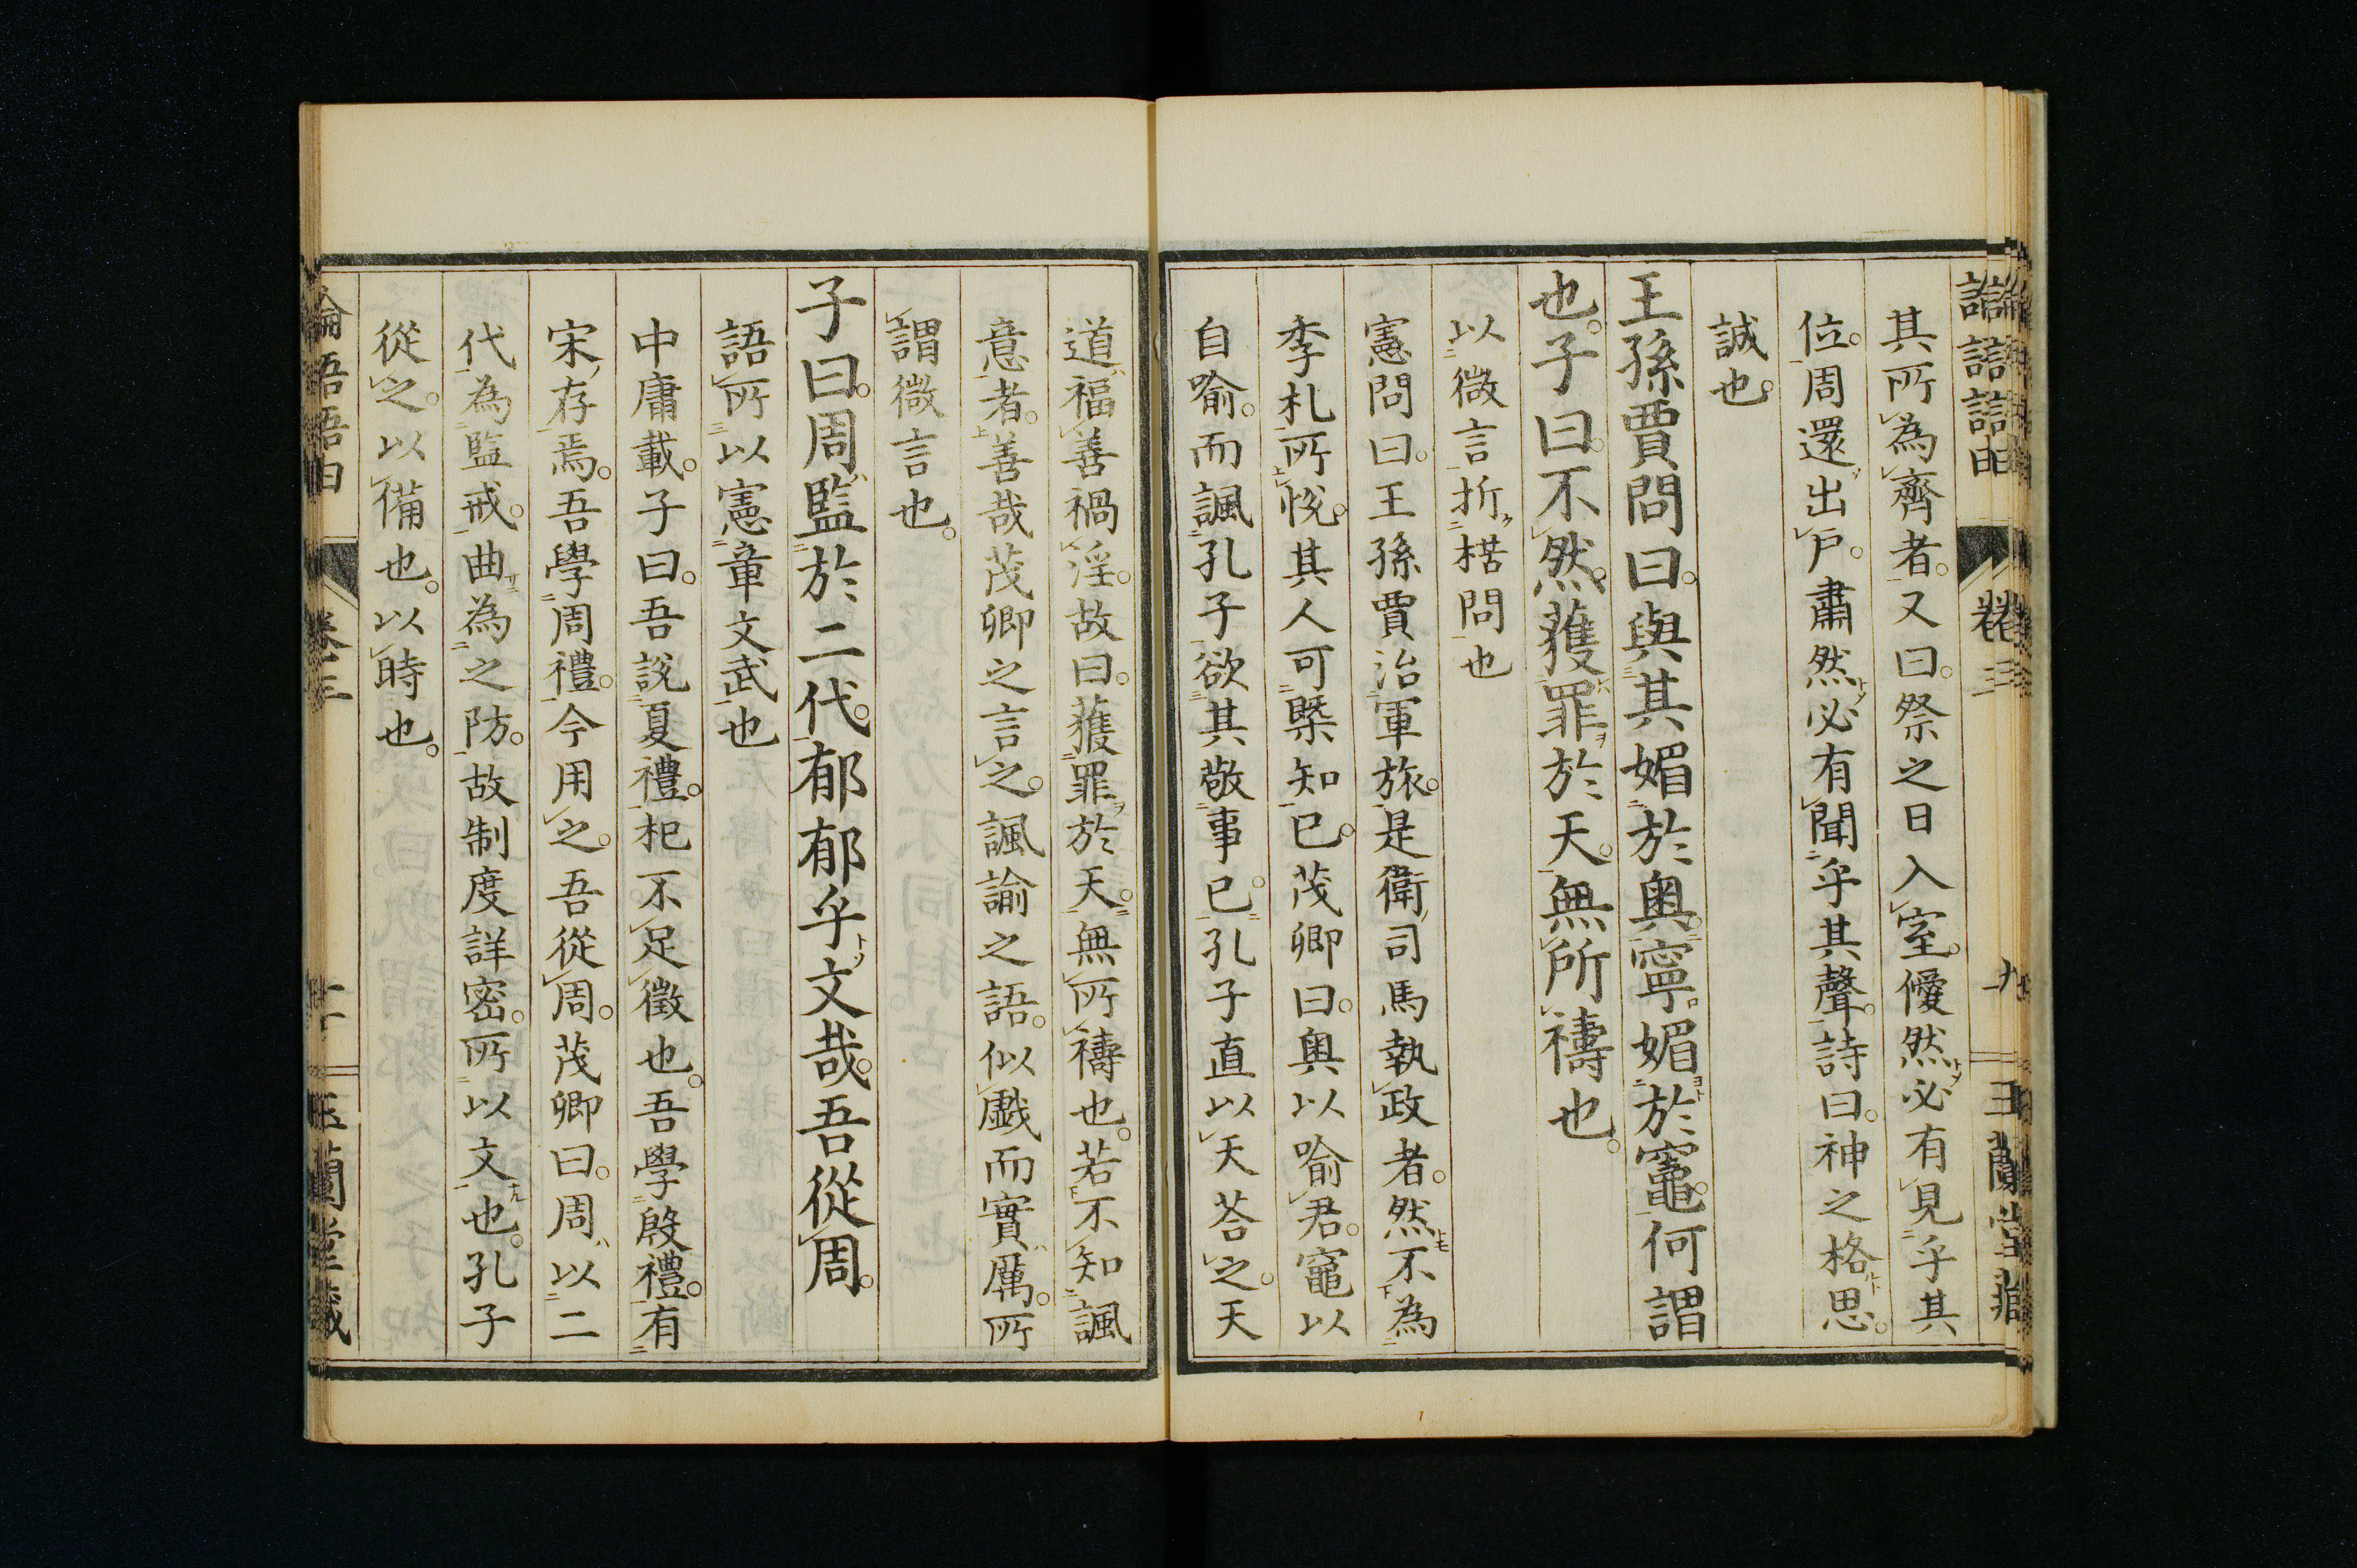 其所為齊者。又曰。祭之日入室。僾然必有見乎其
位。周還出戶。肅然必有聞乎其聲。詩曰。神之格思。
誠也。
王孫賈問曰。與其媚於奧。寧媚於竈。何謂
也。子曰。不然。獲罪於天。無所禱也。
以微言折楛問也
憲問曰。王孫賈治軍旅。是衛司馬執政者。然不為
季札所悅。其人可槩知已。茂卿曰。奧以喻君。竈以
自喻。而諷孔子欲其敬事已。孔子直以天荅之。天
道福善禍淫。故曰。獲罪於天。無所禱也。若不知諷
意者。善哉茂卿之言之。諷諭之語。似戱而實厲。所
謂微言也。
子曰。周監於二代。郁郁乎文哉。吾從周。
語所以憲章文武也
中庸載。子曰。吾說夏禮。杞不足徵也。吾學殷禮。有
宋存焉。吾學周禮。今用之。吾從周。茂卿曰。周以二
代為監戒。曲為之防。故制度詳密。所以文也。孔子
從之。以備也。以時也。
卷三